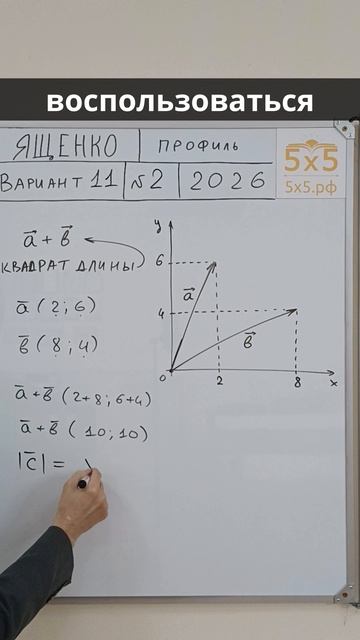 воспользоваться
ЯЩЕНКО ПРОФИЛЬ
ВАРИАНТ 11 №2 2026
5х5
5х5.рф
a + в
КВАДРАТ ДЛИНЫ
a (2; 6)
в (8; 4)
a+в (2+8; 6+4)
a+в (10; 10)
|c| =
y
6
a
4
в
0
2
8
x